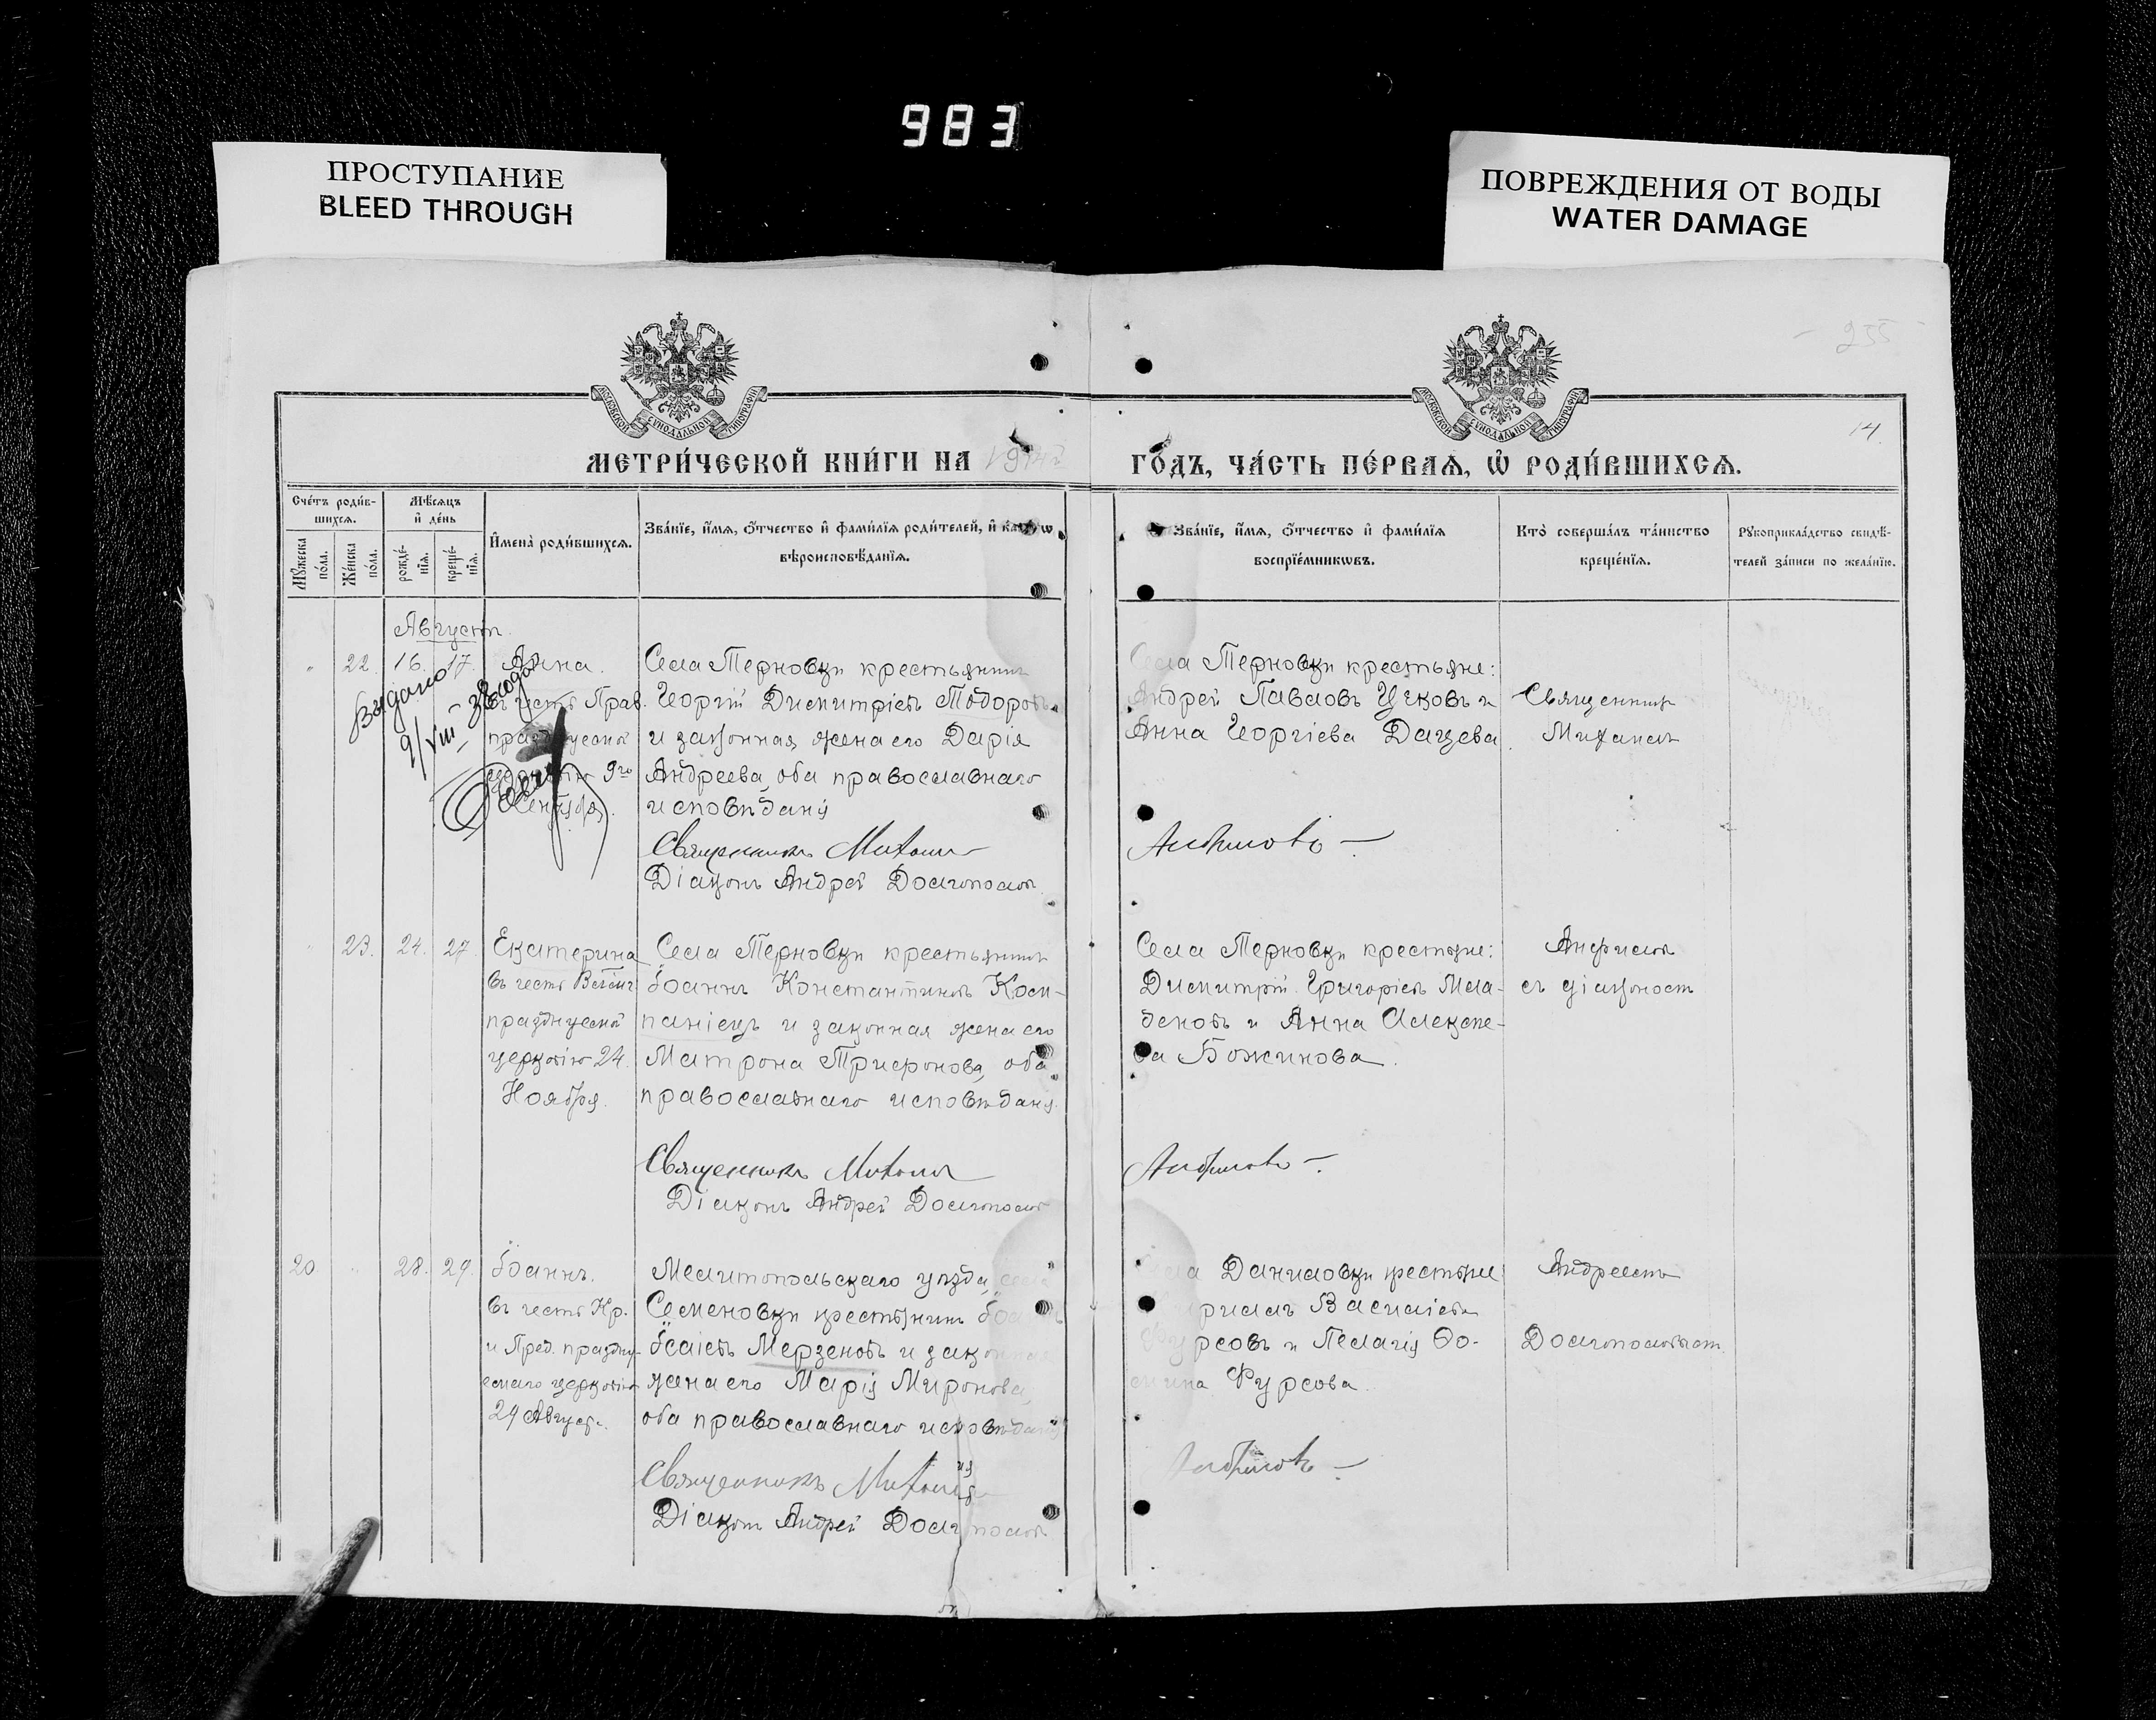 983
ПРОСТУПАНИЕ
BLEED THROUGH
ПОВРЕЖДЕНИЯ ОТ ВОДЫ
WATER DAMAGE
255
14.
МОСКОВСКОЙ СѴНОДАЛЬНОЙ ТИПОГРАФІИ
МОСКОВСКОЙ СѴНОДАЛЬНОЙ ТИПОГРАФІИ
МЕТРИ́ЧЕСКОЙ КНИ́ГИ НА
ГО́ДЪ, ЧА́СТЬ ПЕ́РВАѦ, Ѡ҆ РОДИ́ВШИХСѦ.
Сче́тъ роди́в-
шихсѧ.
Мꙋ́жеска по́ла.
Же́нска по́ла.
Мѣ́сѧцъ и҆ де́нь
рожде́-нїѧ.
креще́-нїѧ.
И҆мена̀ роди́вшихсѧ.
Зва́нїе, и҆́мѧ, ѻ҆́тчество и҆ фами́лїѧ роди́телей, и҆
вѣроисповѣ́данїѧ.
Зва́нїе, и҆́мѧ, ѻ҆́тчество и҆ фами́лїѧ
воспрїе́мникѡвъ.
Кто̀ соверша́лъ та́инство
креще́нїѧ.
Рꙋкоприкла́дство свидѣ́-
телей за́писи по жела́нїю.
Августъ
22. 16. 17. Анна.
въ честь Прав.
9го
Сентября.
Выдано
9/VIII
Села Терновки крестьянинъ
Георгій Димитріевъ Тодоровъ
и законная жена его Дарія
Андреева, оба православнаго
исповѣданія
Священникъ Михаилъ
Діаконъ Андрей Долгополовъ
Села Терновки крестьяне:
Андрей Павловъ Цѣковъ и
Анна Георгіева Дацева
Анфимовъ
Священникъ
Михаилъ
23. 24. 27. Екатерина
въ честь Велмч
празднуемой
церковію 24.
Ноября.
Села Терновки крестьянинъ
Іоаннъ Константиновъ Коли-
паніецъ и законная жена его
Матрона Трифонова, оба
православнаго исповѣданія.
Священникъ Михаилъ
Діаконъ Андрей Долгополовъ
Села Терновки крестьяне:
Димитрій Григоріевъ Мла-
деновъ и Анна Алексѣе-
ва Божинова.
Анфимовъ
Анфимовъ
съ діакономъ
20 28. 29. Іоаннъ.
въ честь Кр.
и Пред. праздну-
емаго церковію
29 Августа.
Мелитопольскаго уѣзда, села
Семеновки крестьянинъ Іоаннъ
Ісаіевъ Мерзеновъ и законная
жена его Марія Миронова,
оба православнаго исповѣданія
Священникъ Михаилъ
Діаконъ Андрей Долгополовъ
Села Даниловки крестьяне
Васильевъ
Фурсовъ и Пелагія Ѳо-
мина Фурсова.
Анфимовъ
Андреемъ
Долгополовымъ.